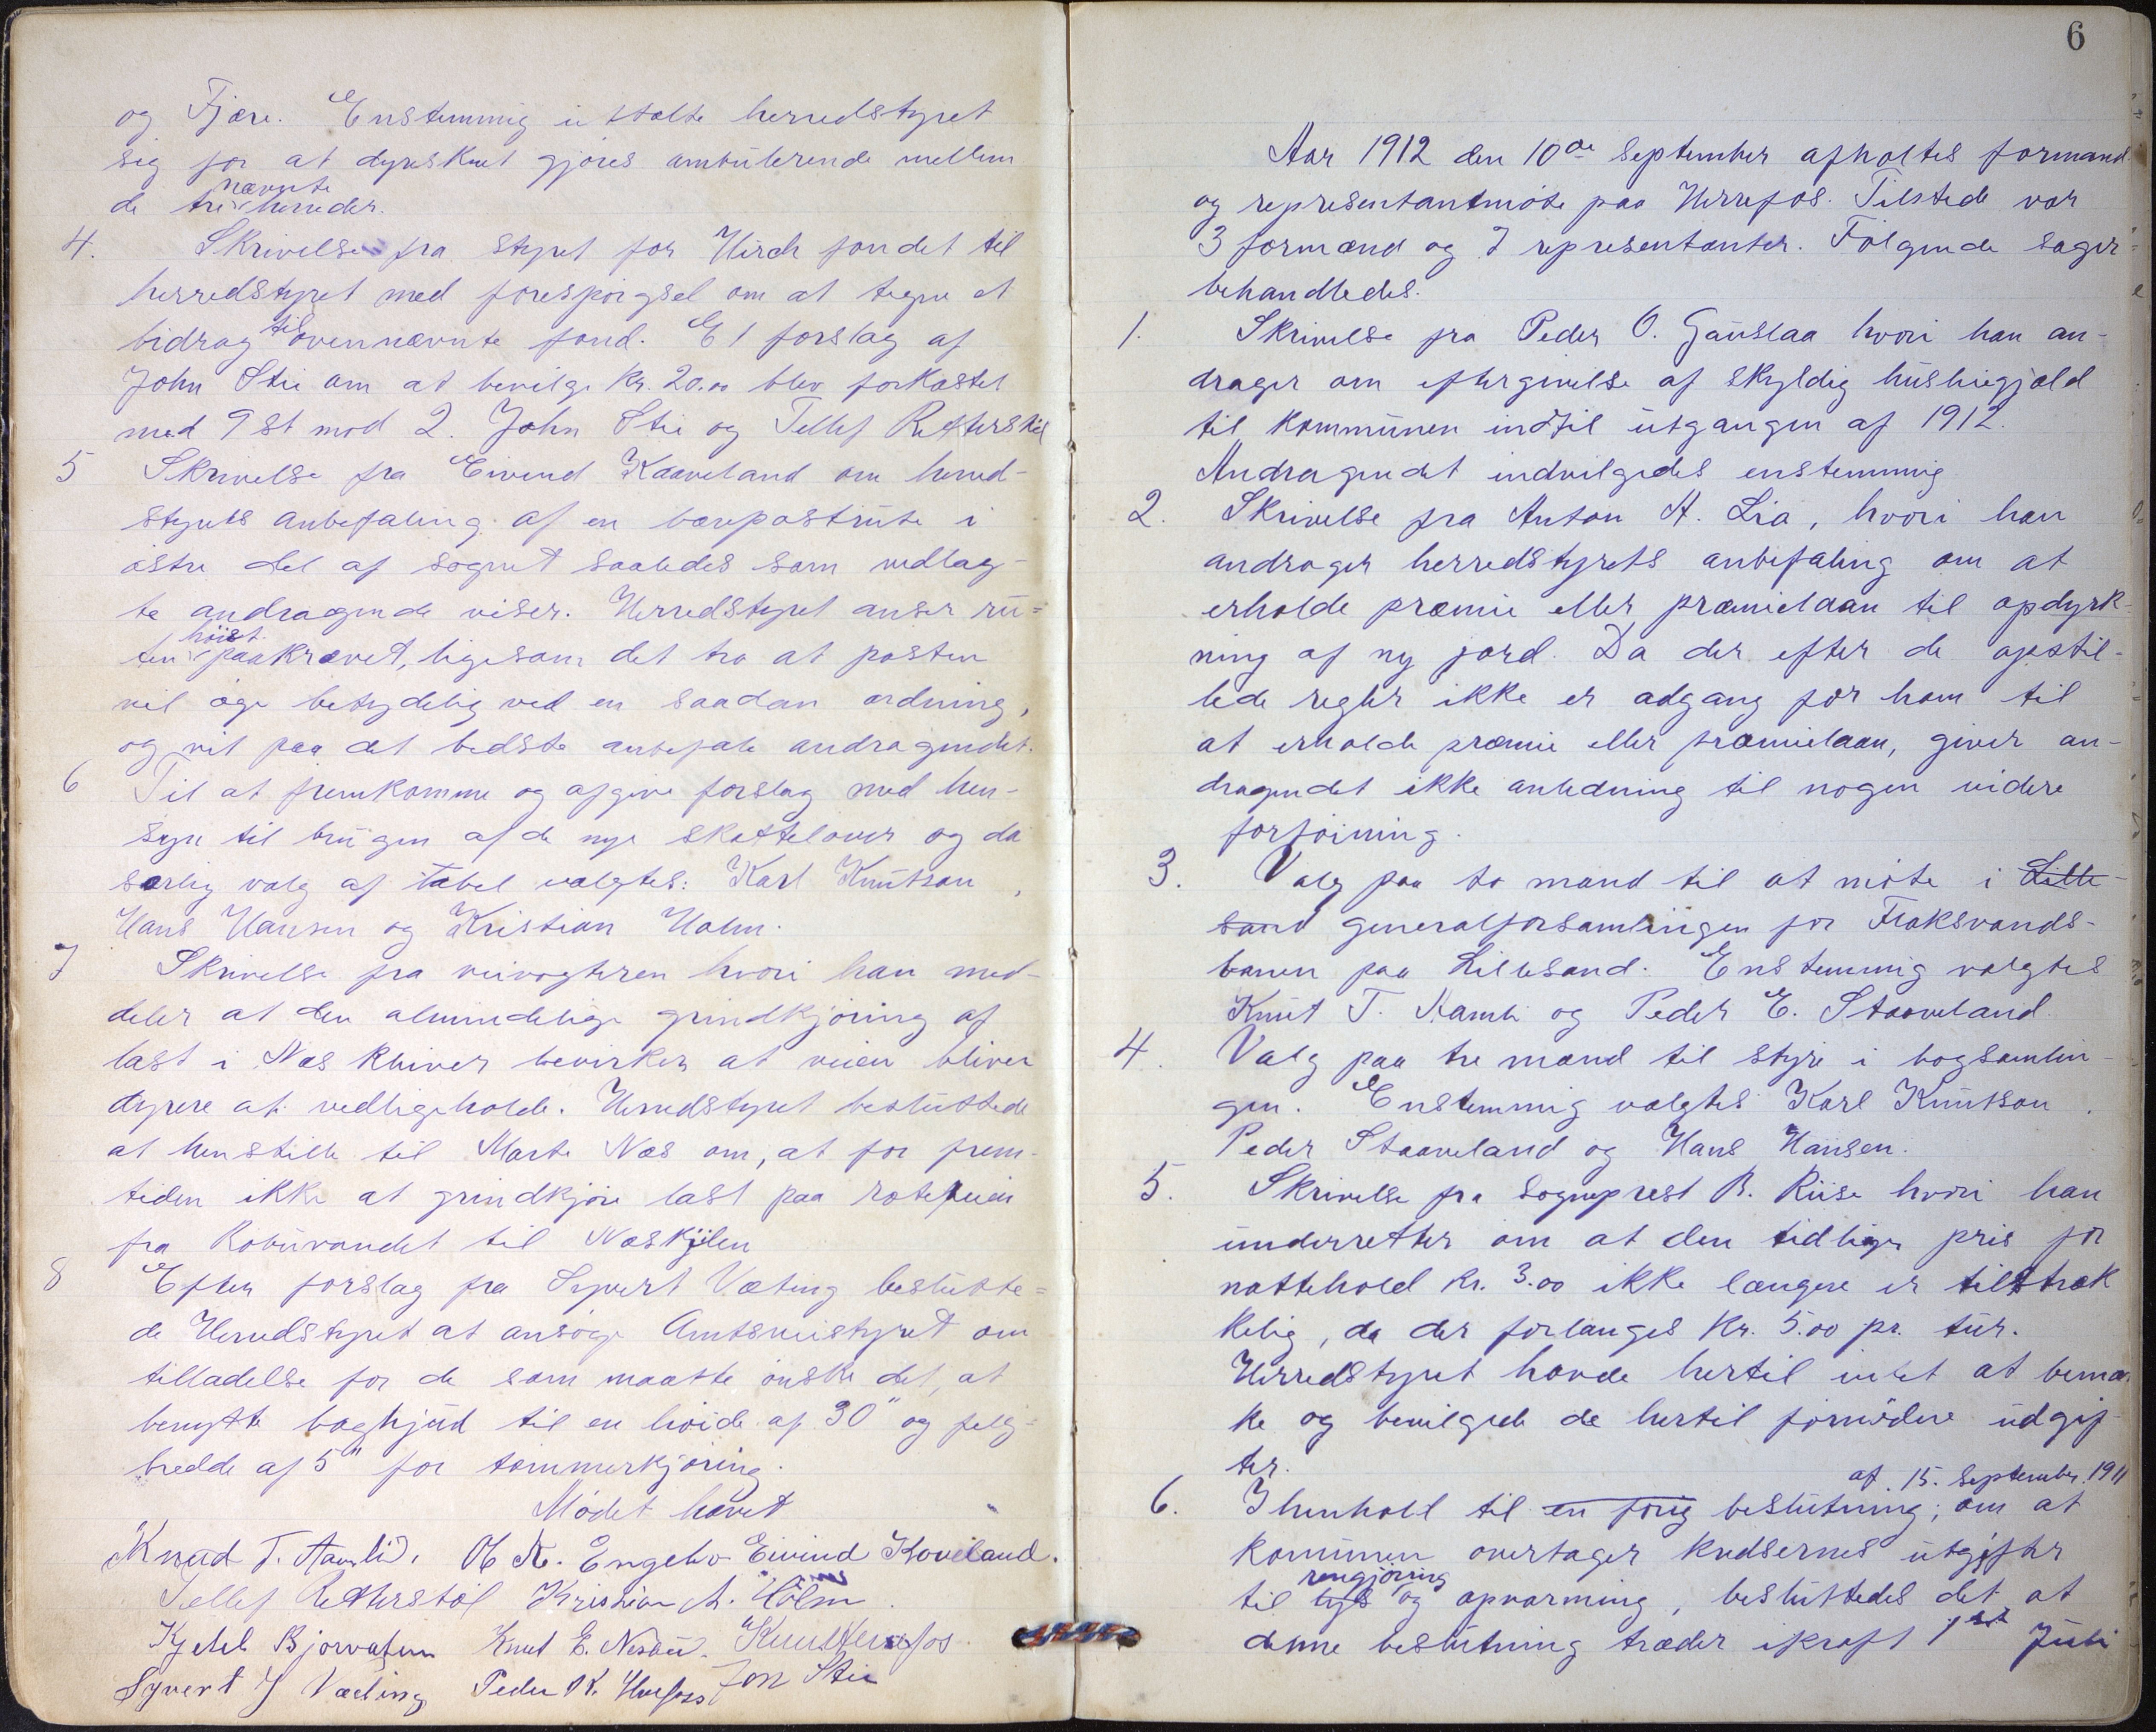 og Fjære. Enstemmig uttalte herredstyret
sig for at dyrskuet gjøres ambulerende mellem
de tre nævnte herreder.
4. Skrivelse fra styret for Hirch fondet til
herredstyret med forespørgsel om at tegne et
bidrag til ovennævnte fond. Et forslag af
John Stie om at bevilge kr. 20.00 blev forkastet
med 9 st mod 2. John Stie og Tellef Retterstøl
5 Skrivelse fra Eivind Kaaveland om herred-
styrets anbefaling af en bærpostrute i
østre del af sognet saaledes som vedlag-
te andragende viser. Herredstyret anser ru-
ten høist paakrævet, ligesom det tro at posten
vil øge betydelig ved en saadan ordning,
og vil paa det bedste anbefale andragendet.
6 Til at fremkomme og afgive forslag med hen-
syn til brugen af de nye skattelover og da
særlig valg af tabel valgtes: Karl Knutson,
Hans Hansen og Kristian Holm.
7 Skrivelse fra veivogteren hvori han med-
deler at den almindelige grindkjøring af
last i Næs kliver bevirker at veien bliver
dyrere at vedligeholde. Herredstyret besluttede
at henstille til Marte Næs om, at for frem-
tiden ikke at grindkjøre last paa roteveien
fra Robuvandet til Næskilen
8 Efter forslag fra Syvert Væting beslutte-
de Herredstyret at ansøge Amtsveistyret om
tilladelse for de som maatte ønske det, at
benytte baghjud til en høide af 30" og felg-
bredde af 5" for tømmerkjøring.
Mødet hævet
Knud T. Aamli. O K. Engebo Eivind Kaveland.
Tellef Retterstøl Kristian A. Holm.
Kjetel Bjorvatten Knut E. Nesbu. Knut Herefos.
Syvert J Væting Peder K. Herefoss Jon Stie
6
Aar 1912 den 10de september afholtes formand
og representantmøte paa Herrefos. Tilstede var
3 formænd og 7 representanter. Følgende sager
behandledes.
1. Skrivelse fra Peder O. Gauslaa hvori han an-
drager om eftergivelse af skyldig hushiegjæld
til kommunen indtil utgangen af 1912.
Andragendet indvilgedes enstemmig
2. Skrivelse fra Anton A. Lia, hvori han
androger herredstyrets anbefaling om at
erholde præmie eller præmielaan til opdyrk-
ning af ny jord. Da der efter de opstil-
lede regler ikke er adgang for ham til
at erholde præmie eller præmielaan, giver an-
dragendet ikke anledning til nogen videre
forføining.
3. Valg paa to mænd til at møte i Lille-
sand generalforsamlingen for Flaksvands-
banen paa Lillesand. Enstemmig valgtes
Knut T. Aamli og Peder E. Staaveland
4. Valg paa tre mænd til styre i bogsamlin-
gen. Enstemmig valgtes Karl Knutson,
Peder Staaveland og Hans Hansen.
5. Skrivelse fra sogneprest B. Riise hvori han
underretter om at den tidlige pris for
nattehold kr. 3.00 ikke længere er tilstræk
kelig, da der forlanges kr. 5.00 pr. tur.
Herredstyret havde hertil intet at bemær
ke og bevilgede de hertil fornødne udgif-
ter.
6. I henhold til en forig beslutning af 15. september 1911; om at
kommunen overtager kredsernes utgifter
til lys rengjøring og opvarming, besluttedes det at
denne beslutning træder ikraft 1ste Juli